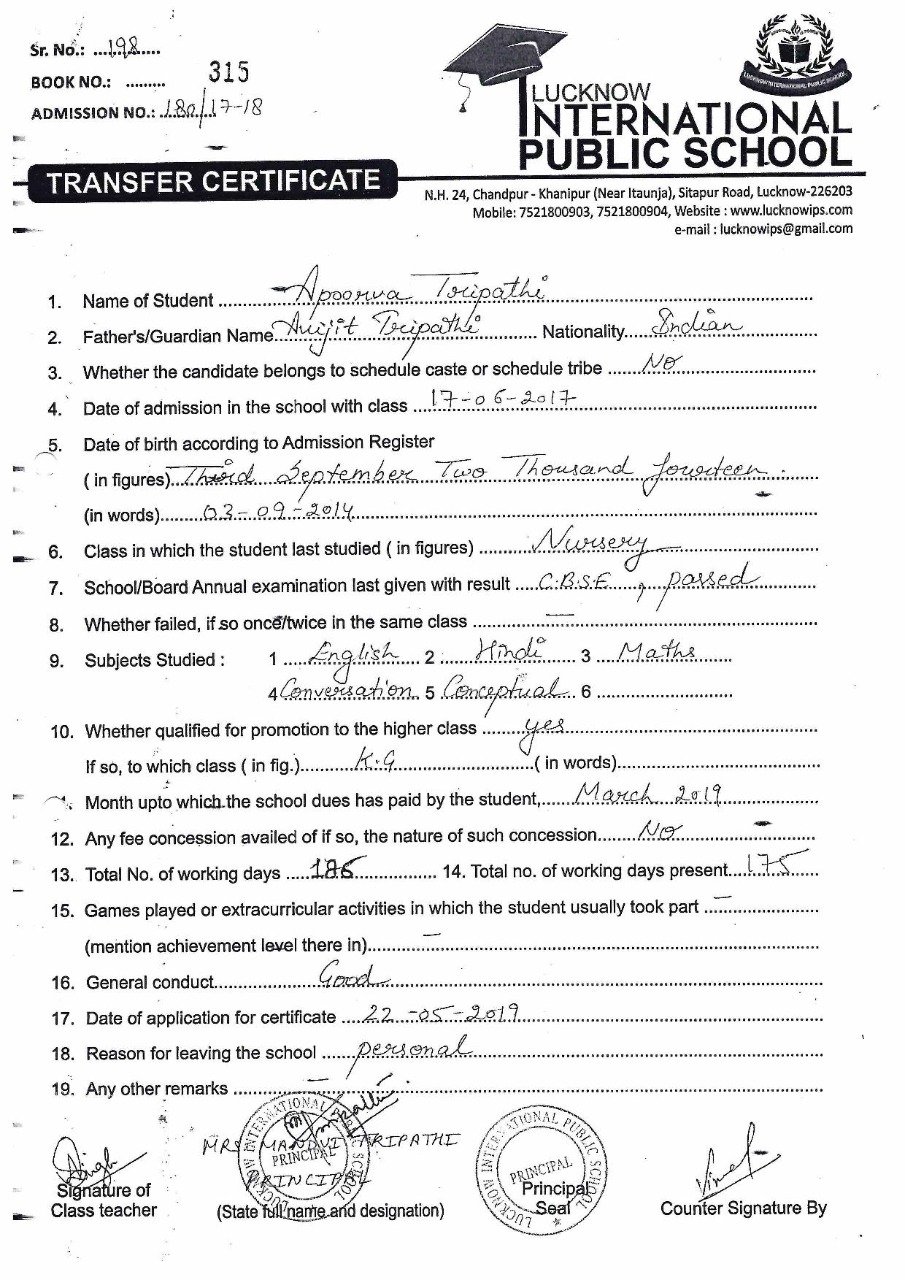 Sr. No.: ...198.....
BOOK NO.: ......... 315
ADMISSION NO.: 180/17-18
LUCKNOW INTERNATIONAL PUBLIC SCHOOL
LUCKNOW
INTERNATIONAL
PUBLIC SCHOOL
TRANSFER CERTIFICATE
N.H. 24, Chandpur - Khanipur (Near Itaunja), Sitapur Road, Lucknow-226203
Mobile: 7521800903, 7521800904, Website : www.lucknowips.com
e-mail : lucknowips@gmail.com
1. Name of Student Apoorva Tripathi
2. Father's/Guardian Name Avijit Tripathi Nationality Indian
3. Whether the candidate belongs to schedule caste or schedule tribe NO
4. Date of admission in the school with class 17-06-2017
5. Date of birth according to Admission Register
( in figures) Third September Two Thousand fourteen.
(in words) 03-09-2014
6. Class in which the student last studied ( in figures) Nursery
7. School/Board Annual examination last given with result C.B.S.E , passed
8. Whether failed, if so once/twice in the same class —
9. Subjects Studied : 1 English 2 Hindi 3 Maths
4 Conversation 5 Conceptual 6
10. Whether qualified for promotion to the higher class yes
If so, to which class ( in fig.) K.G ( in words)
Month upto which the school dues has paid by the student, March 2019
12. Any fee concession availed of if so, the nature of such concession NO
13. Total No. of working days 186 14. Total no. of working days present 175
15. Games played or extracurricular activities in which the student usually took part —
(mention achievement level there in) —
16. General conduct Good
17. Date of application for certificate 22-05-2019
18. Reason for leaving the school personal
19. Any other remarks —
MRS MANDVI TRIPATHI
PRINCIPAL
LUCKNOW INTERNATIONAL PUBLIC SCHOOL
PRINCIPAL
LUCKNOW INTERNATIONAL PUBLIC SCHOOL
PRINCIPAL
Signature of
Class teacher
(State full name and designation)
Principal
Seal
Counter Signature By